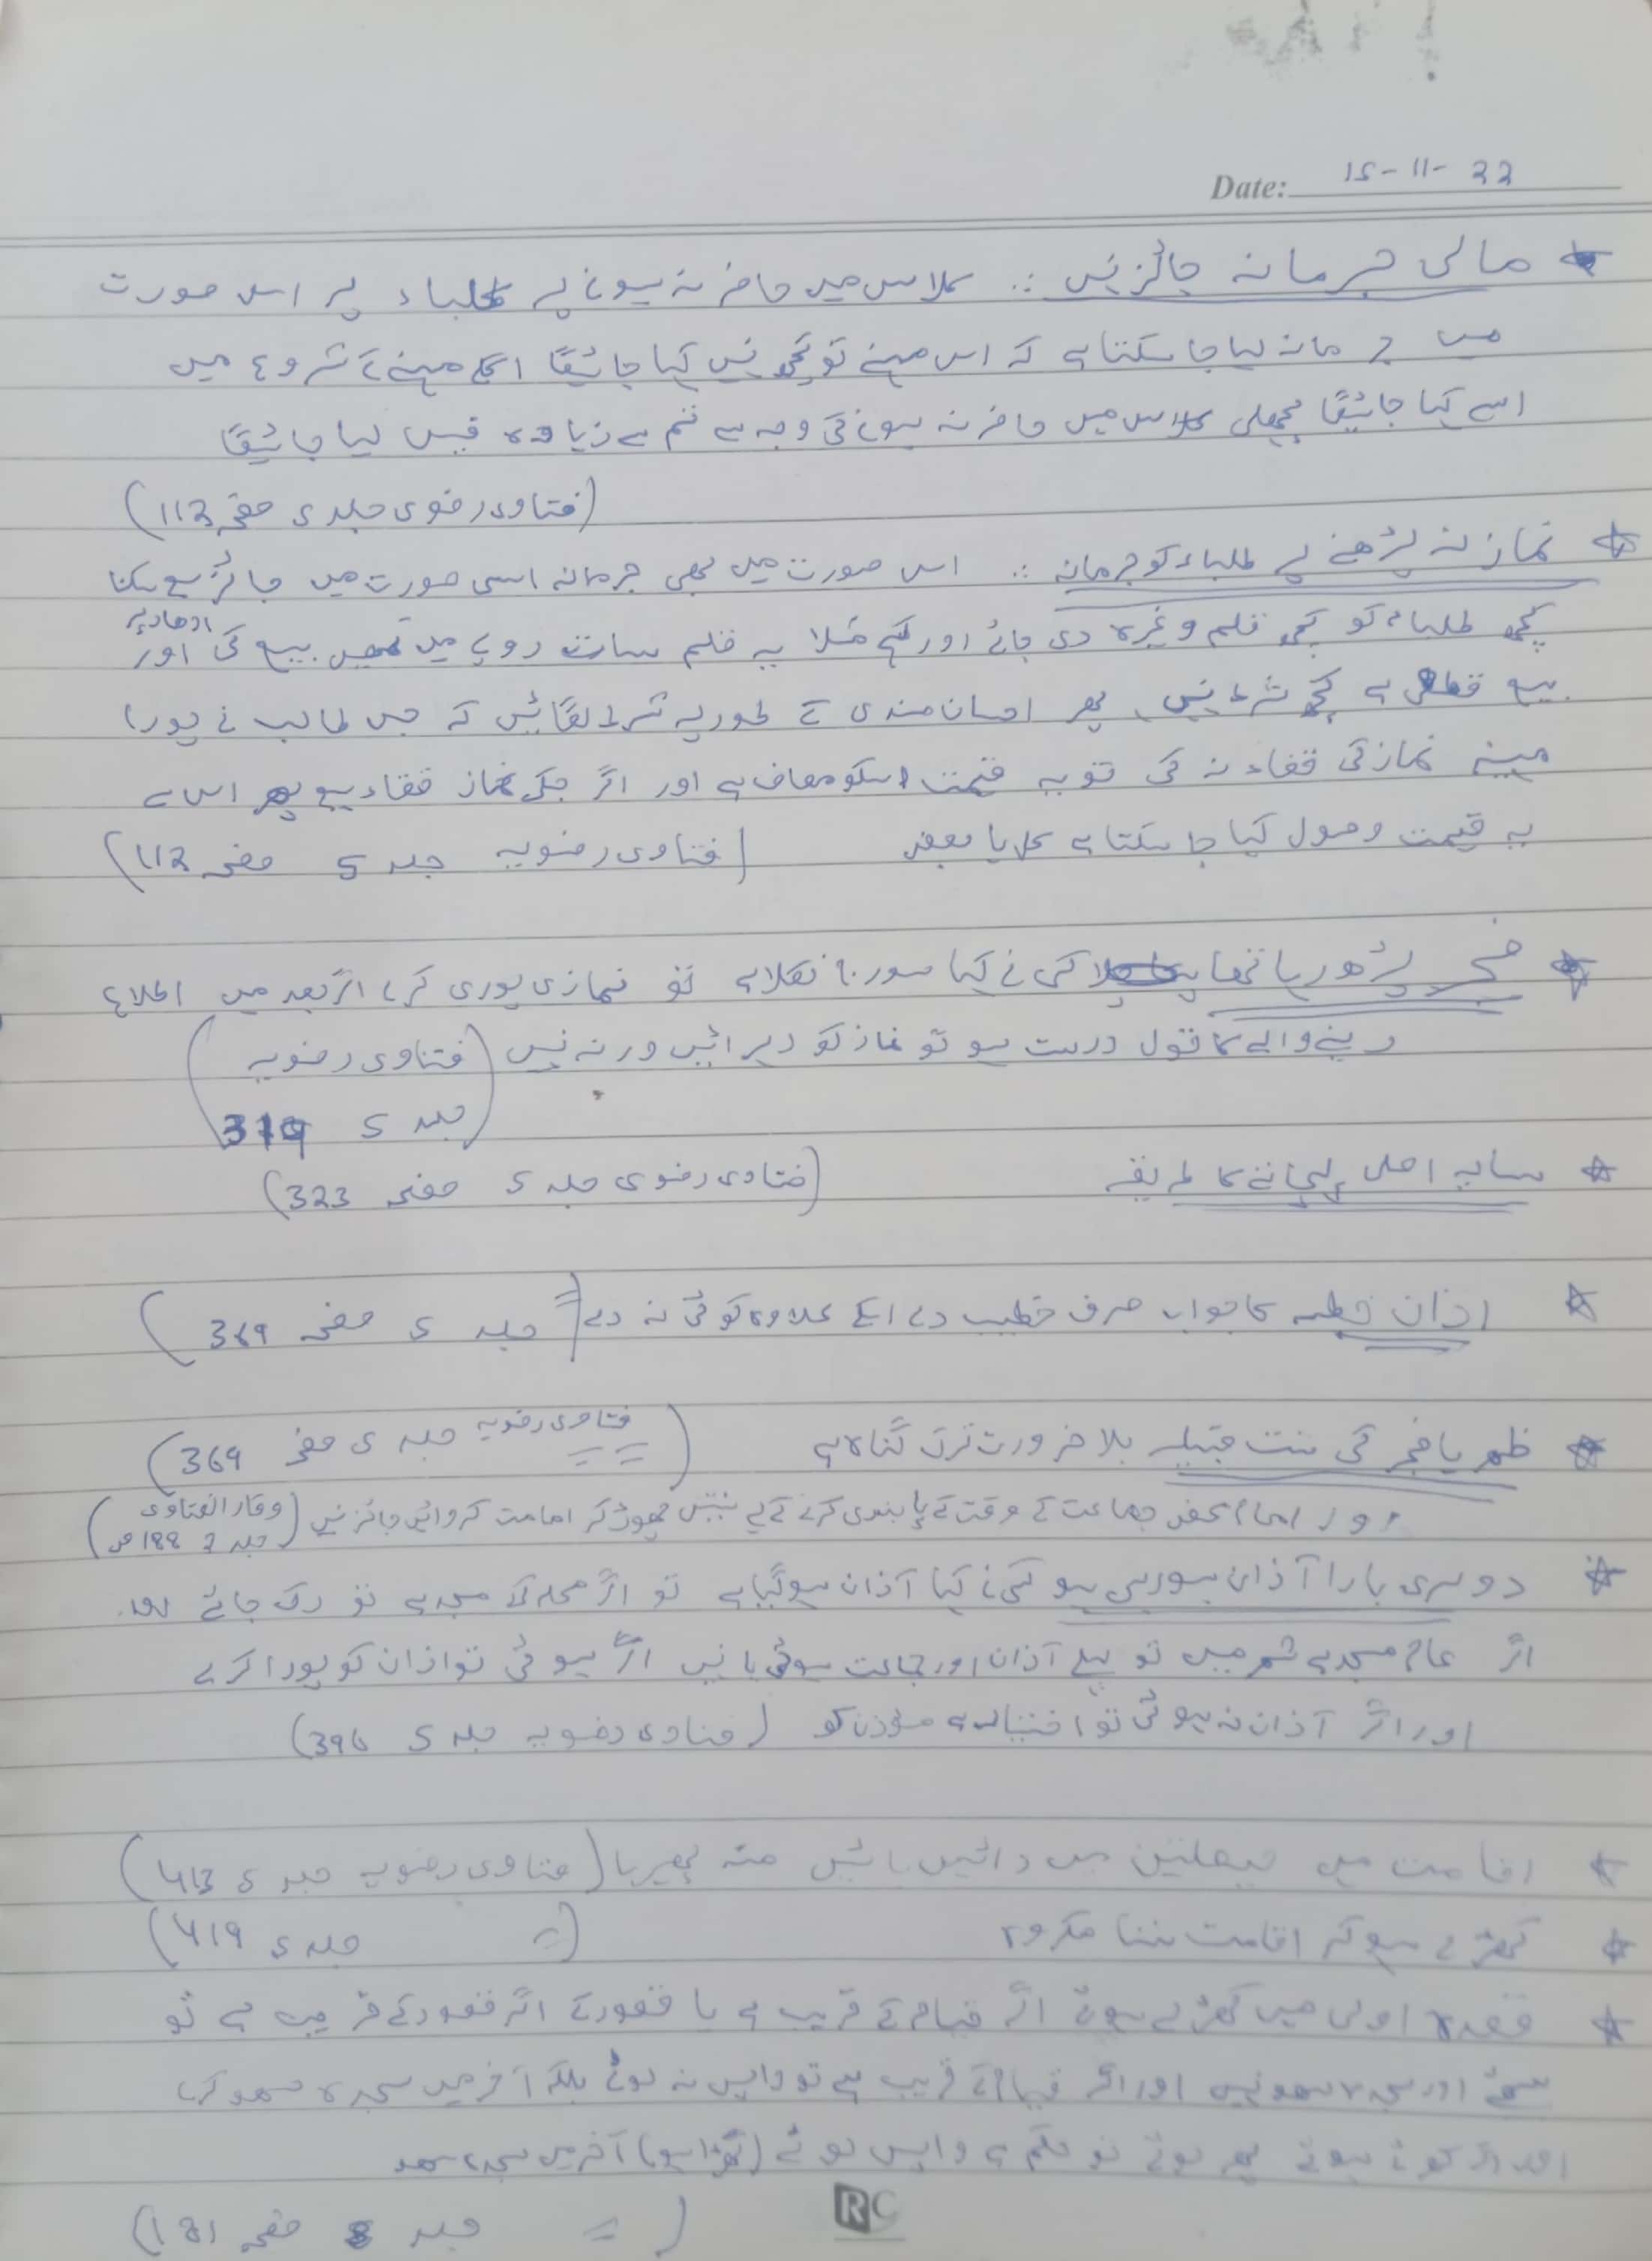 Date: 15-11-22
★ مالی جرمانہ جائز نہیں :. کلاس میں حاضر نہ ہونے پر طلباء پر اس صورت
میں جرمانہ لیا جا سکتا ہے کہ اس مہینے تو کچھ نہیں کہا جائیگا اگلے مہینے کے شروع میں
اسے کہا جائیگا پچھلی کلاس میں حاضر نہ ہونے کی وجہ سے تم سے زیادہ فیس لیا جائیگا
(فتاوی رضوی جلد 5 صفحہ 112)
★ نماز نہ پڑھنے پر طلباء کو جرمانہ :. اس صورت میں بھی جرمانہ اسی صورت میں جائز ہو سکتا
کچھ طلباء کو کچھ قلم وغیرہ دی جائے اور کہے مثلا یہ قلم سات روپے میں تمھیں بیع کی ادھار پر اور
بیع قطعی ہے کچھ شرط نہیں پھر احسان مندی کے طور پہ شرط لگائیں کہ جس طالب نے پورا
مہینے نماز کی قضاء نہ کی تو یہ قیمت اسکو معاف ہے اور اگر جسکی نماز قضاء ہوی پھر اس سے
یہ قیمت وصول کیا جا سکتا ہے کل یا بعض (فتاوی رضویہ جلد 5 صفحہ 112)
★ فجر پڑھ رہا تھا کسی نے کہا سورج نکلا ہے تو نماز ی پوری کرے اگر بعد میں اطلاع
دینے والے کا قول درست ہو تو نماز کو دہرائیں ورنہ نہیں (فتاوی رضویہ
جلد 5 319)
★ سایہ اصلی پہچاننے کا طریقہ (فتاوی رضوی جلد 5 صفحہ 323)
★ اذان خطبہ کا جواب صرف خطیب دے اسکے علاوہ کوئی نہ دے (= جلد 5 صفحہ 369)
★ ظہر یا فجر کی سنت قبلیہ بلا ضرورت ترک گناہ ہے (فتاوی رضویہ جلد 5 صفحہ 369)
اور امام محض جماعت کے وقت کے پابندی کرنے کے لیے سنتیں چھوڑ کر امامت کروائیں جائز نہیں (وقار الفتاوی جلد 2 ص 188)
★ دوسری بارا آذان ہو رہی ہو کسی نے کہا آذان ہو گیا ہے تو اگر محلہ کا مسجد ہے تو رک جائے
اگر عام مسجد ہے شہر میں تو پہلے آذان اور جماعت ہوئی یا نہیں اگر ہوئی تو اذان کو پورا کرے
اور اگر آذان نہ ہوئی تو اختیار ہے مؤذن کو (فتاوی رضویہ جلد 5 396)
★ اقامت میں حیعلتین میں دائیں بائیں منہ پھیرنا (فتاوی رضویہ جلد 5 413)
★ کھڑے ہو کر اقامت سننا مکروہ (= جلد 5 419)
★ قعدہ اولی میں کھڑے ہوئے اگر قیام کے قریب ہے یا قعود کے اگر قعود کے قریب ہے تو
اور سجدہ سھو نہیں اور اگر قیام کے قریب ہے تو واپس نہ لوٹے بلکہ آخر میں سجدہ سھو کرے
اور اگر کھڑے ہوئے پھر لوٹے تو حکم ہے واپس لوٹے (کھڑا ہو) آخر میں سجدہ سھو
(= جلد 8 صفحہ 181)
RC